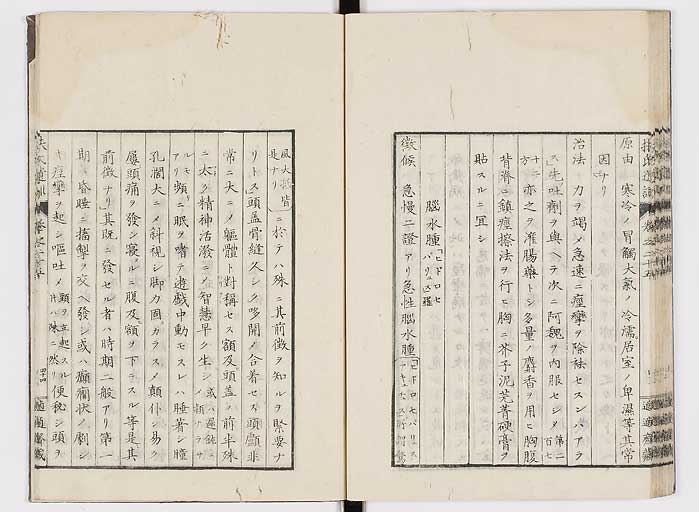 原由 寒冷ノ冒觸大氣ノ冷濡居室ノ卑濕等其常
因ナリ
治法 力ヲ竭メ急速ニ痙攣ヲ除袪セスンハアラ
ス先吐劑ヲ與ヘテ次ニ阿魏ヲ内服セシメ 第二百七
十二 亦之ヲ灌腸藥トシ多量ノ麝香ヲ用ヒ胸腹
背脊ニ鎮痙擦法ヲ行ヒ胸ニ芥子泥芫菁硬膏ヲ
貼スルニ宜シ
腦水腫
徴候 急慢二證アリ急性腦水腫
ニ於テハ殊ニ其前徴ヲ知ルヲ緊要ナ
リトス頭蓋骨縫久シク哆開ノ合着セス頭顱非
常ニ大ニノ軀體ト對稱セス額及頭蓋ノ前半殊
ニ太ク精神活潑ニノ智慧早ク生シ
アリ頻ニ眠ヲ嗜テ遊戲中動モスレハ睡著シ瞳
孔濶大ニノ斜視シ脚力固カラスノ顛仆シ易ク
屢頭痛ヲ發シ寢ルニ腹及額ヲ下ニスル等是其
前徴ナリ其既ニ發セル者ハ時期二般アリ第一
期ハ昏睡ニ搐掣ヲ交ヘ發シ或ハ癲癇狀ノ劇シ
キ痙攣ヲ起シ嘔吐メ 頭ヲ立起スル片ハ殊ニ然リ 便秘シ頭ヲ